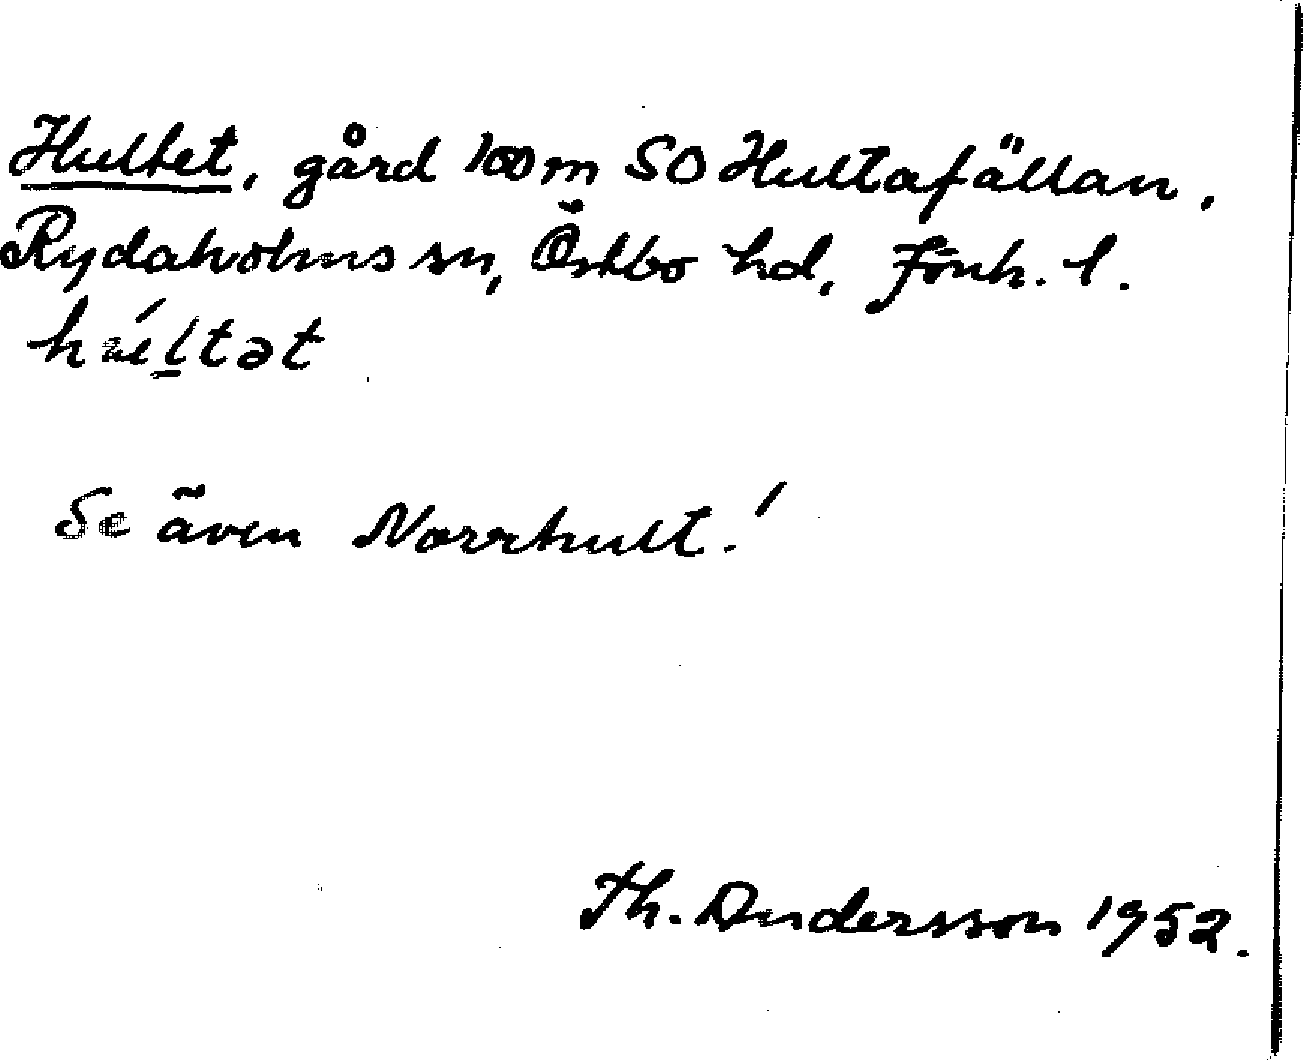 Hultet, gård 100 m SO Hultafällan,
Rydaholms sn, Östbo hd, Jönk. l.
Se även Norrhult!
Th. Andersson 1952.